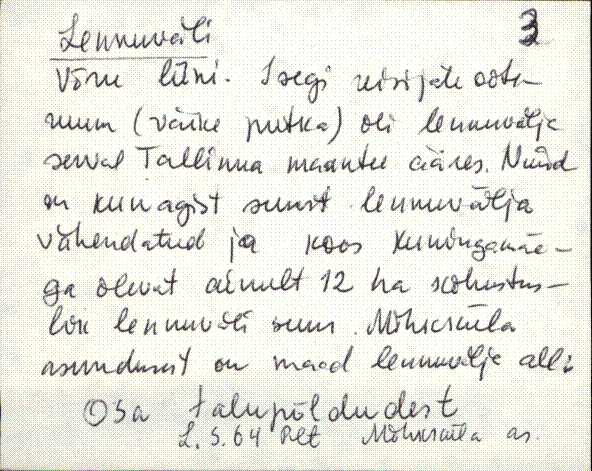 3
Lennuväli
Võru liini. Isegi reisijate oote-
ruum (väike putka) oli lennuvälja
serval Tallinna maantee ääres. Nüüd
on kunagist suurt lennuvälja
vähendatud ja koos Kuningamäe-
ga olevat ainult 12 ha
lik lennuväli suur. Mõhksküla
asundusest on maad lennuvälja all:
Osa talupõldudest
L. S. 64 Plt Mõhksküla as.